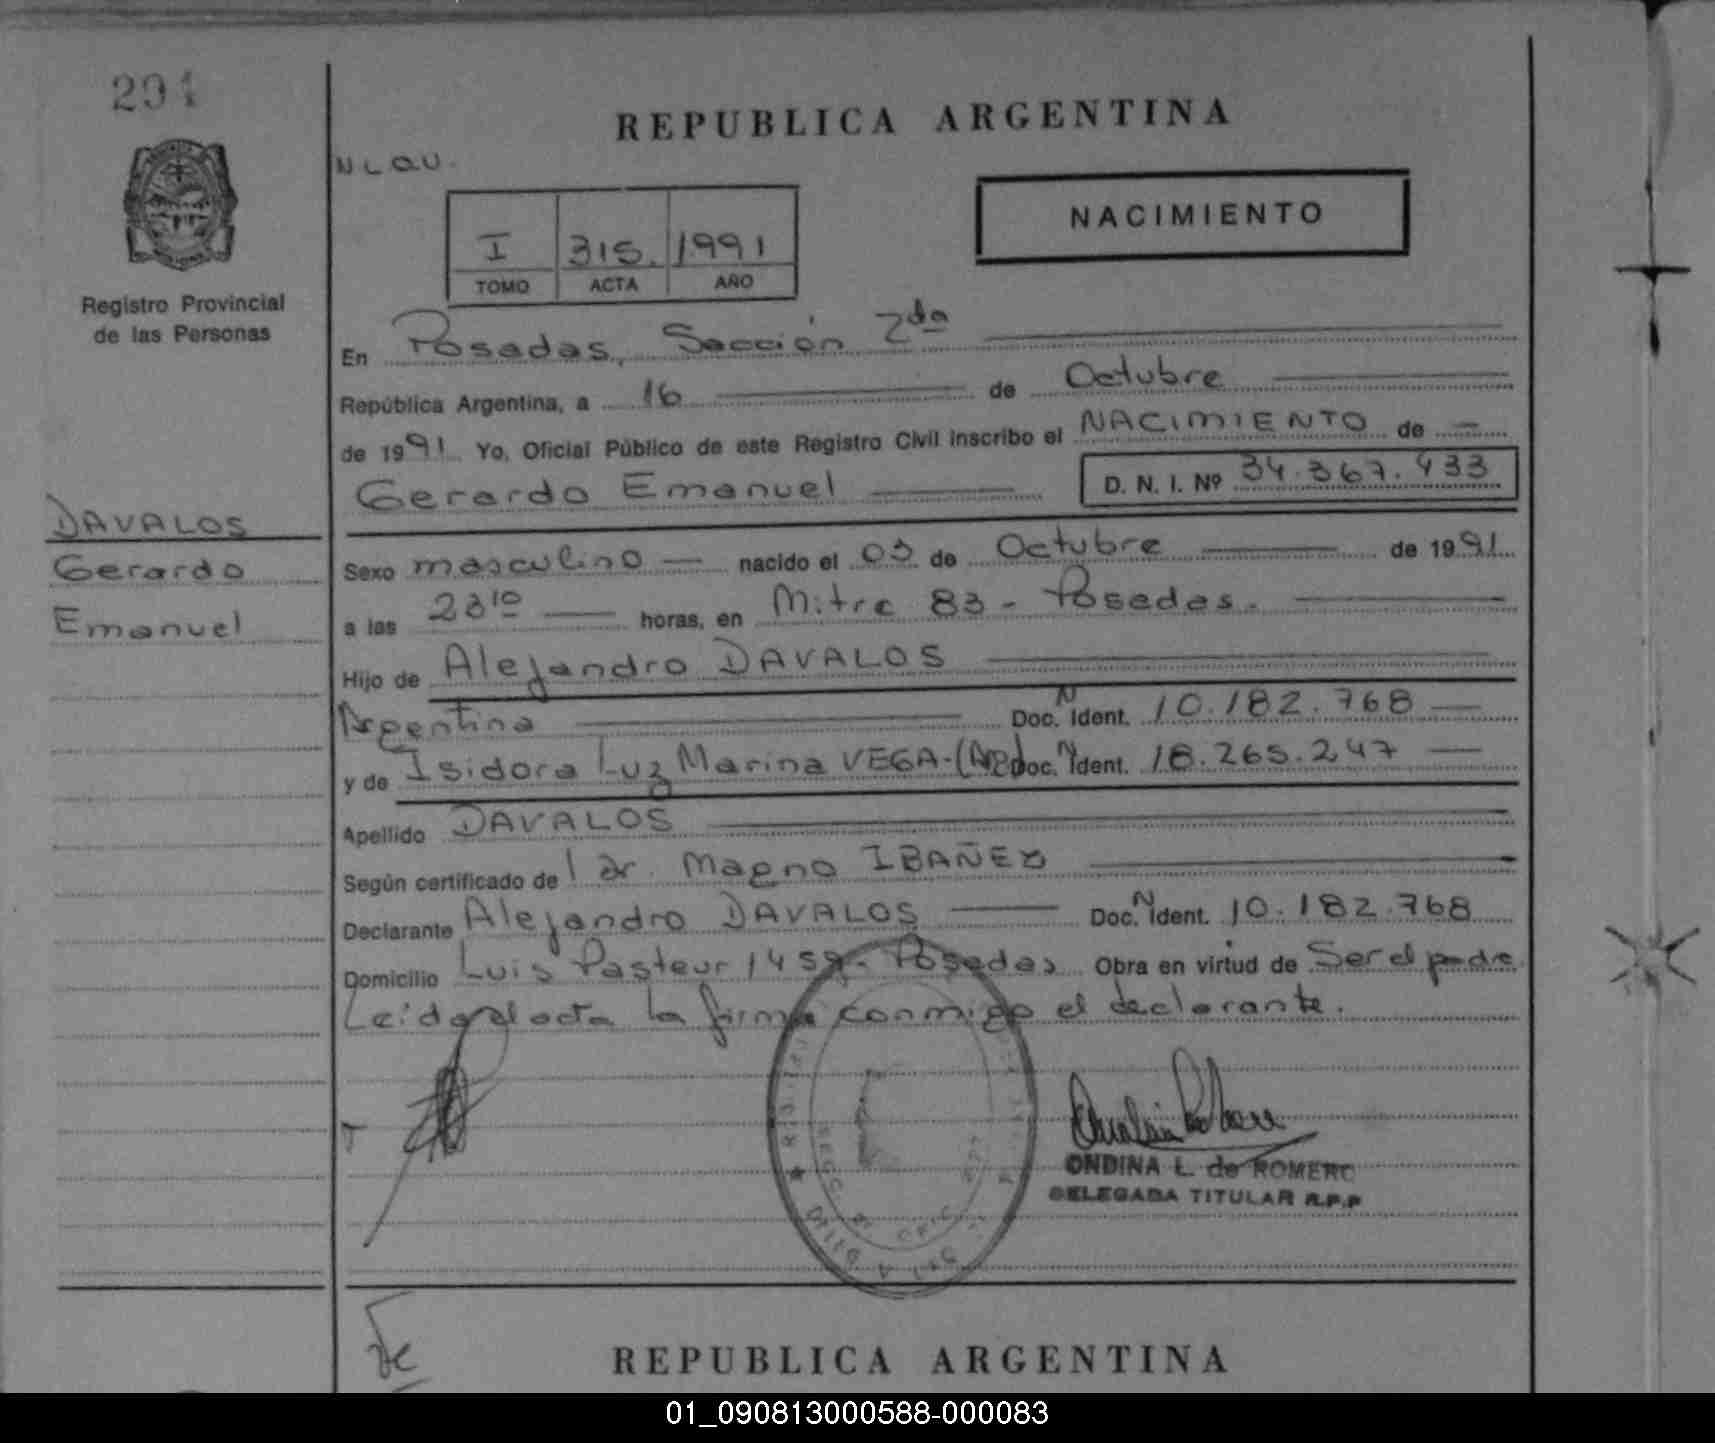 294
REPUBLICA ARGENTINA
NACIMIENTO
I 315. 1991
TOMO ACTA AÑO
Registro Provincial
de las Personas
En Posadas, Sección 2da
República Argentina, a 16 de Octubre
de 1991 Yo, Oficial Público de este Registro Civil inscribo el NACIMIENTO de —
Gerardo Emanuel D. N. I. Nº 34.367.433
DAVALOS
Gerardo
Emanuel
Sexo masculino — nacido el 03 de Octubre de 1991
a las 23 10 horas, en Mitre 83 - Posadas.
Hijo de Alejandro DAVALOS
Argentina Doc. N Ident. 10.182.768
y de Isidora Luz Marina VEGA- Doc. N Ident. 18.265.247
Apellido DAVALOS
Según certificado de l dr. Magno IBAÑEZ
Declarante Alejandro DAVALOS Doc. N Ident. 10.182.768
Domicilio Luis Pasteur 1459- Posadas Obra en virtud de Ser el padre
Leida el acta la firma conmigo el declarante.
ONDINA L. de ROMERO
DELEGADA TITULAR R.P.P
REPUBLICA ARGENTINA
01_090813000588-000083